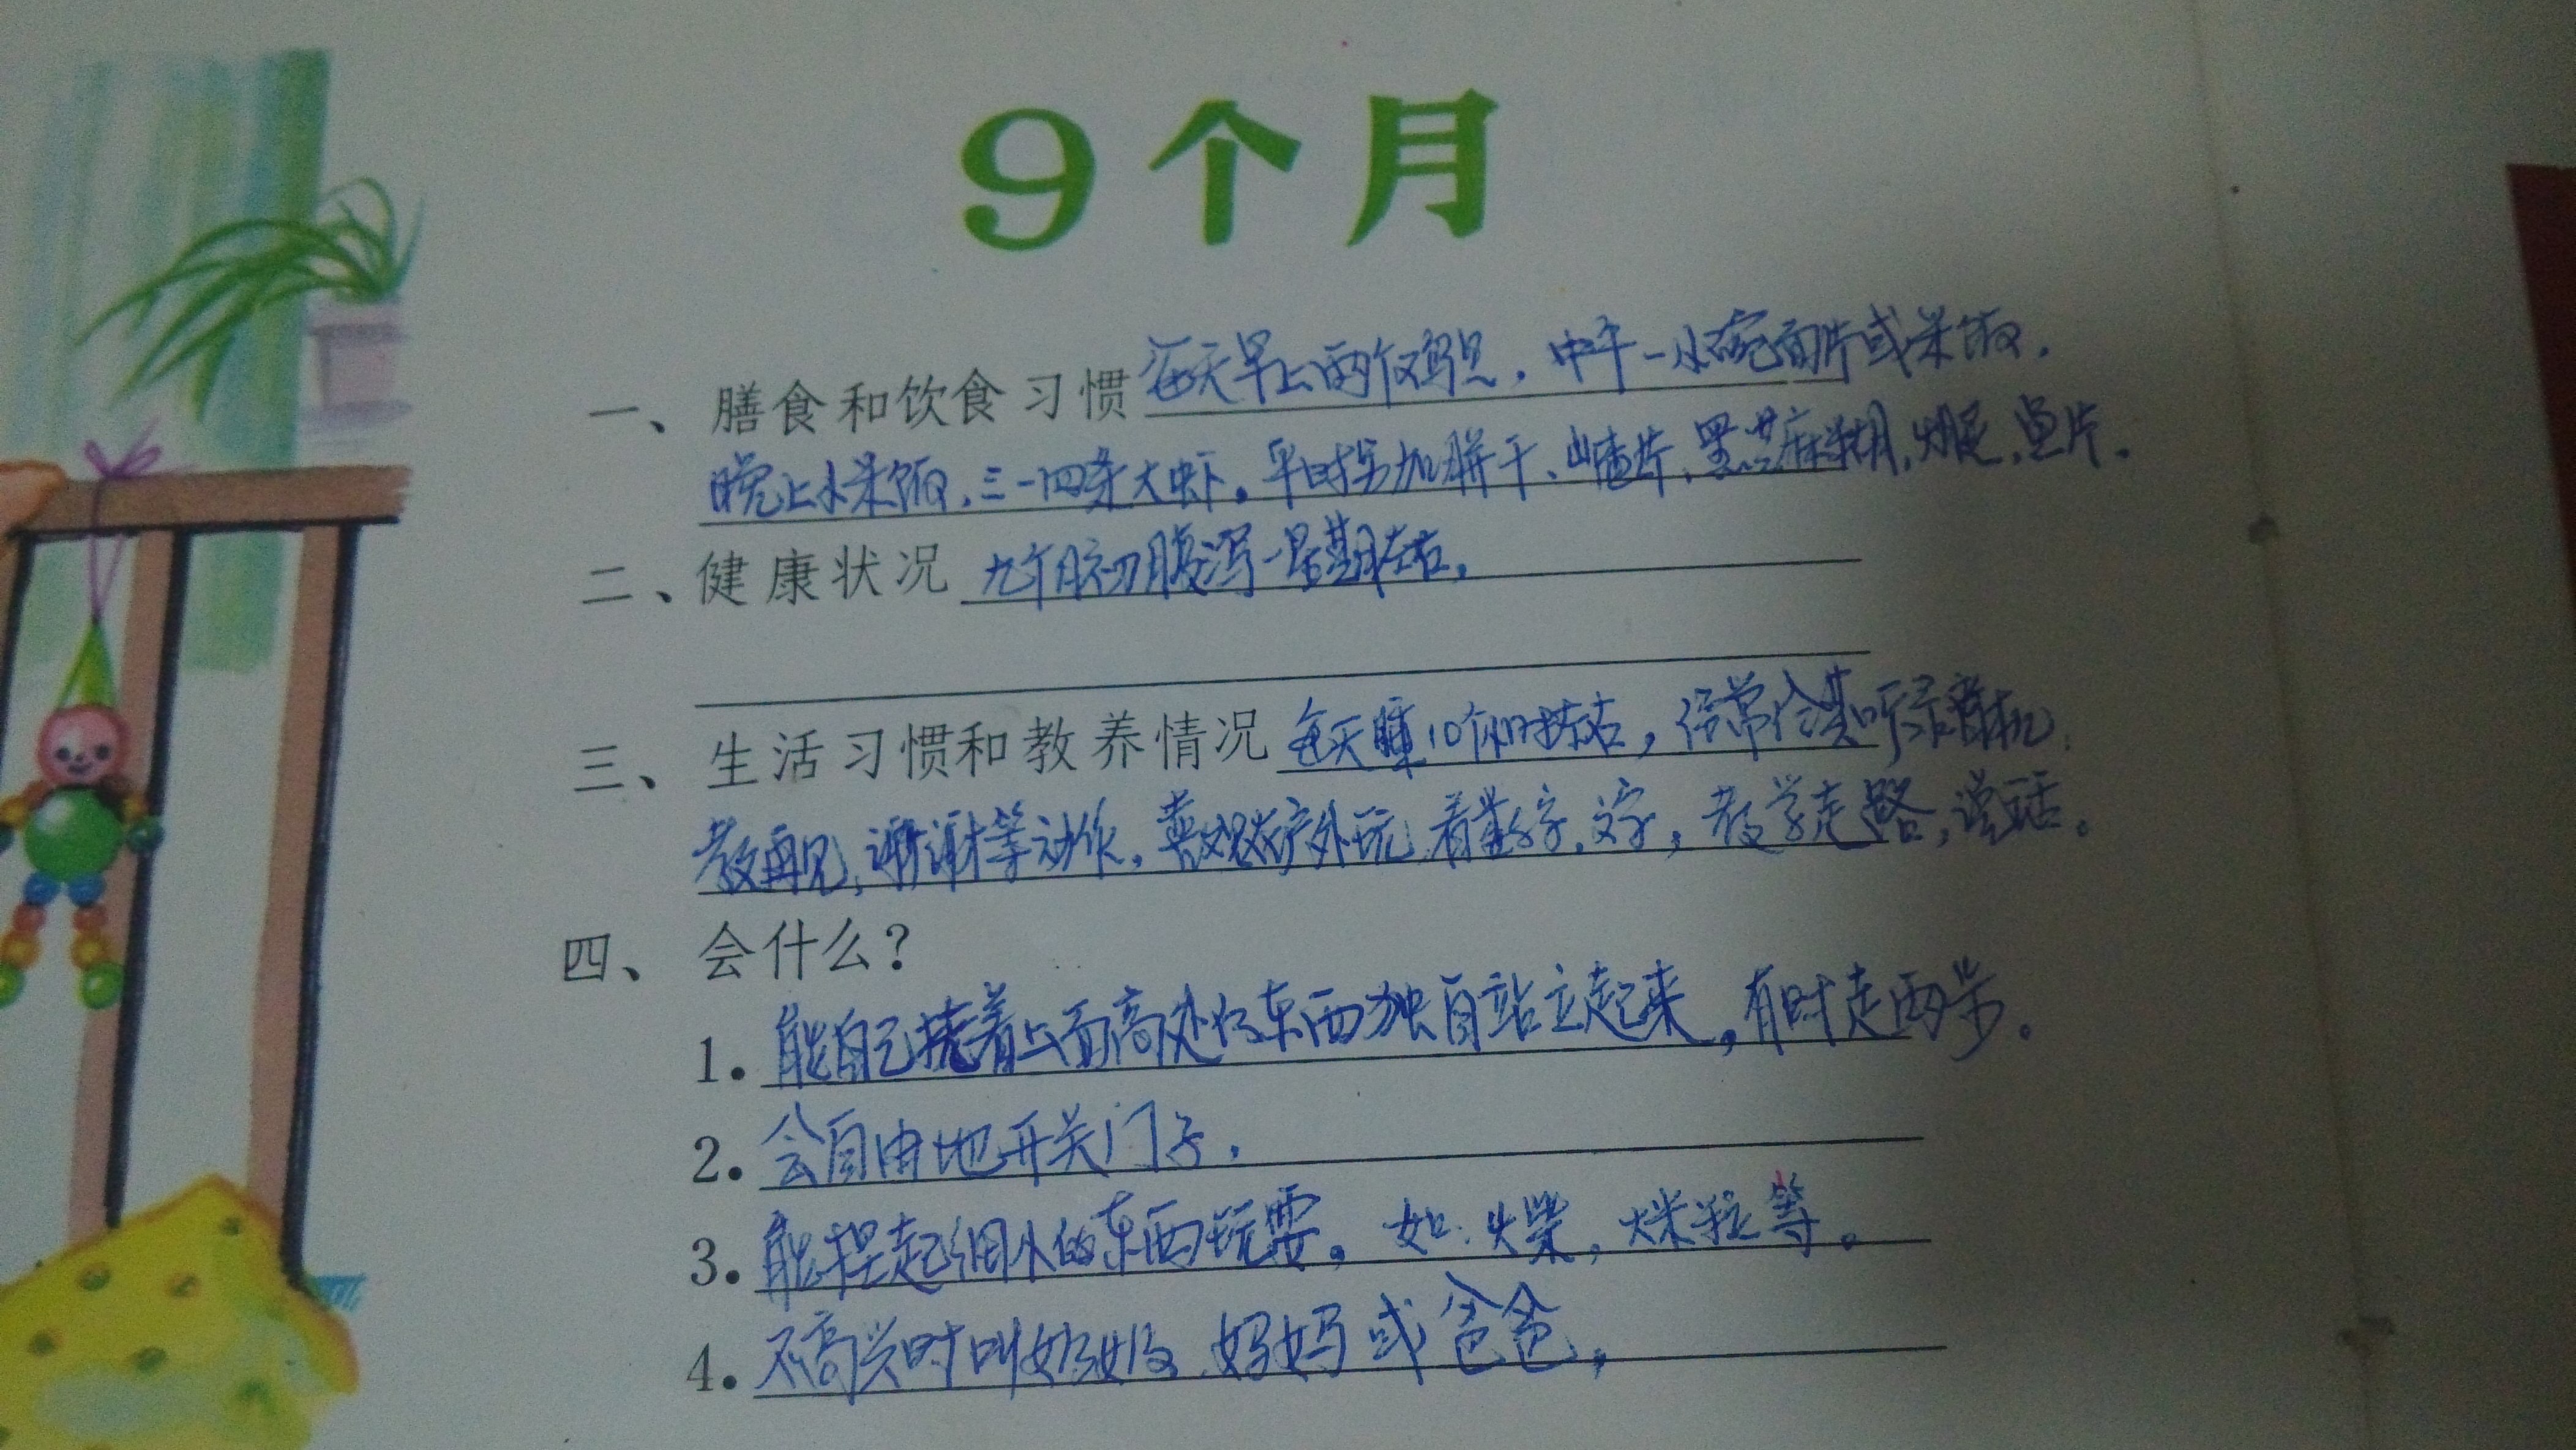 9个月
一、膳食和饮食习惯 每天早上两个鸡蛋，中午一小碗面片或米饭，
晚上小米饭，三—四条大虾。平时另加饼干、山楂片、黑芝麻糊，火腿，鱼片。
二、健康状况 九个月初腹泻一星期左右，
三、生活习惯和教养情况 每天睡10个小时左右，经常给其听录音机，
教再见，谢谢等动作，喜欢户外玩，看数字，文字，教学走路，说话。
四、会什么？
1. 能自己扶着上面高处的东西独自站立起来，有时走两步。
2. 会自由地开关门子，
3. 能捏起细小的东西玩耍。如：火柴，大米粒等。
4. 不高兴时叫奶奶、妈妈或爸爸，